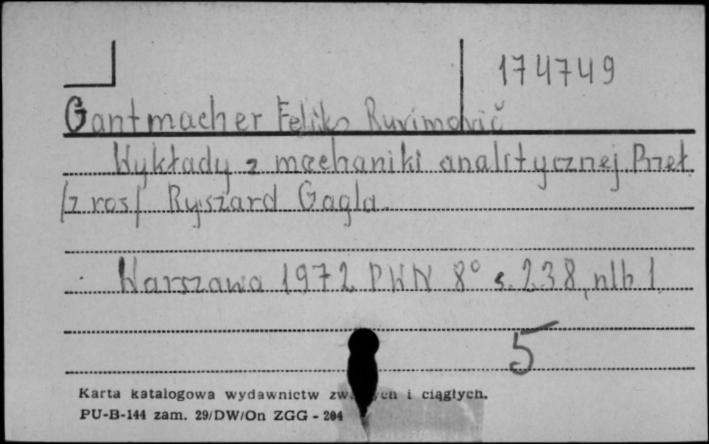 174749
Gantmacher Feliks Ruvimovič
Wykłady z mechaniki analitycznej. Przeł.
/z ros/ Ryszard Gagla.
Warszawa 1972 PWN 8° s. 238, nlb 1.
5
Karta katalogowa wydawnictw i ciągłych.
PU-B-144 zam. 29/DW/On ZGG - 204